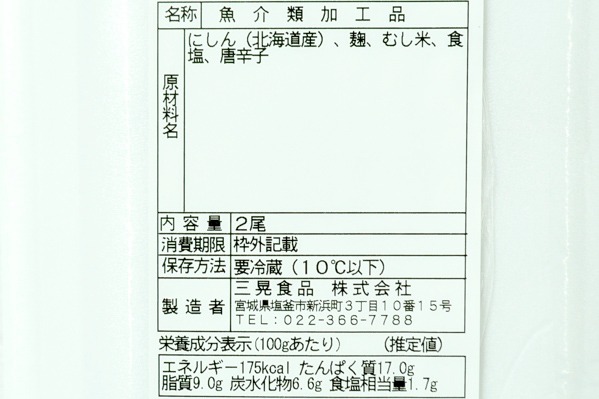 名称 魚介類加工品
原材料名 にしん（北海道産）、麹、むし米、食
塩、唐辛子
内容量 2尾
消費期限 枠外記載
保存方法 要冷蔵（10℃以下）
製造者 三晃食品 株式会社
宮城県塩釜市新浜町3丁目10番15号
TEL：022-366-7788
栄養成分表示（100gあたり） （推定値）
エネルギー175kcal たんぱく質17.0g
脂質9.0g 炭水化物6.6g 食塩相当量1.7g